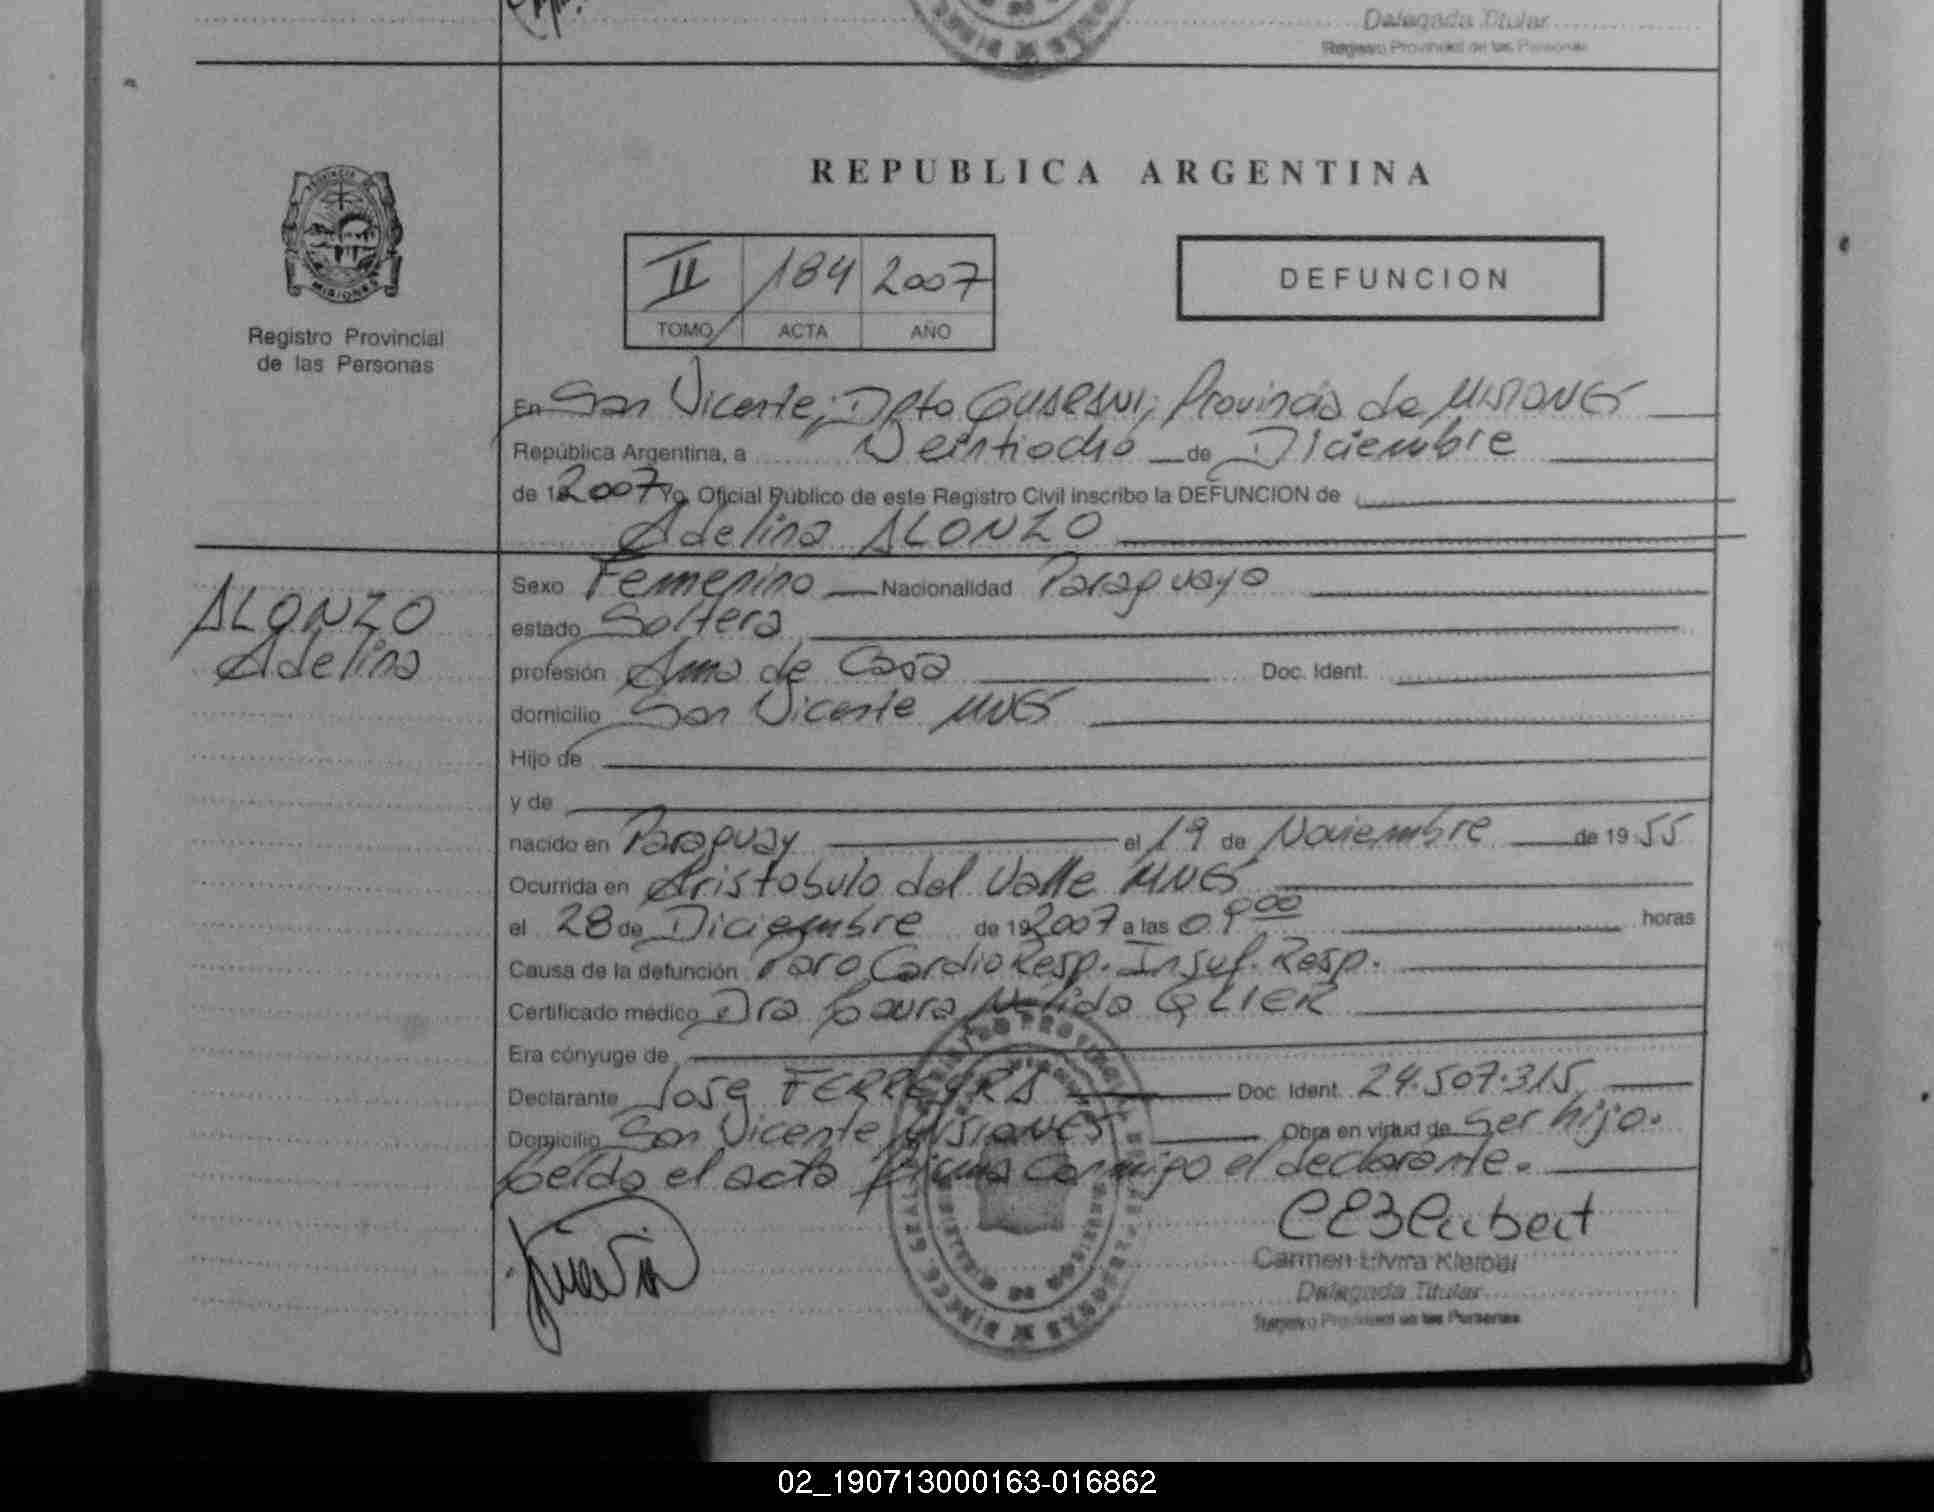 Delegada Titular
Registro Provincial de las Personas
PROVINCIA DE
MISIONES
Registro Provincial
de las Personas
REPUBLICA ARGENTINA
II 184 2007
TOMO ACTA AÑO
DEFUNCION
En San Vicente; Dpto Guarani; Provincia de MISIONES
República Argentina, a Veintiocho de Diciembre
de 19 2007 Yo, Oficial Público de este Registro Civil inscribo la DEFUNCION de
Adelina ALONZO
ALONZO
Adelina
Sexo Femenino Nacionalidad Paraguaya
estado Soltera
profesión Ama de Casa Doc. Ident.
domicilio San Vicente MNES
Hijo de
y de
nacido en Paraguay el 19 de Noviembre de 19 55
Ocurrida en Aristobulo del Valle MNES
el 28 de Diciembre de 19 2007 a las 09 00 horas
Causa de la defunción Paro Cardio Resp. Insuf. Resp.
Certificado médico Dra Laura Nelida GLIER
Era cónyuge de
Declarante Jose FERREYRA Doc. Ident. 24.507.315
Domicilio San Vicente MISIONES Obra en virtud de Ser hijo.
Leida el acta firma conmigo el declarante.
Carmen Elvira Kleiber
Delegada Titular
Registro Provincial de las Personas
02_190713000163-016862